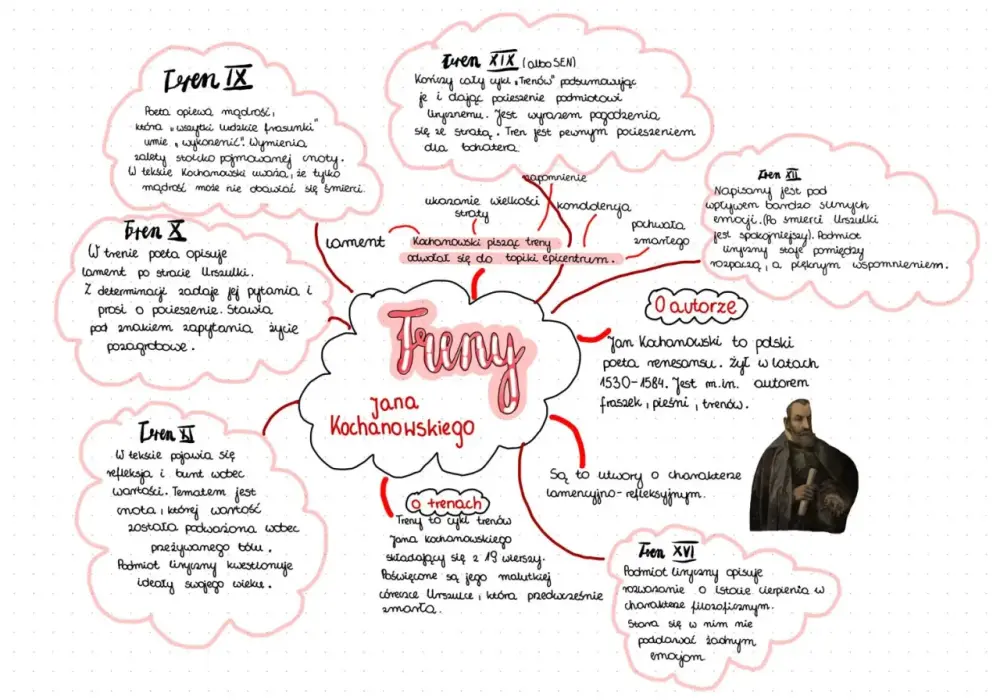 Tren IX
Poeta opiewa mądrość,
która "wszytki ludzkie frasunki"
umie "wykorzenić". Wymienia
zalety stoicko pojmowanej cnoty.
W tekście Kochanowski uważa, że tylko
mądrość może nie obawiać się śmierci.
Tren XIX (albo SEN)
Kończy cały cykl "Trenów" podsumowując
je i dając pocieszenie podmiotowi
lirycznemu. Jest wyrazem pogodzenia
się ze stratą. Tren jest pewnym pocieszeniem
dla bohatera.
Tren XII
Napisany jest pod
wpływem bardzo silnych
emocji. (Po śmierci Urszulki
jest spokojniejszy). Podmiot
liryczny staje pomiędzy
rozpaczą, a pięknym wspomnieniem.
napomnienie
ukazanie wielkości
straty
kondolencja
pochwała
zmarłego
lament
Kochanowski pisząc treny
odwołał się do topiki epicentrum.
Tren X
W trenie poeta opisuje
lament po stracie Urszulki.
Z determinacją zadaje jej pytania i
prosi o pocieszenie. Stawia
pod znakiem zapytania życie
pozagrobowe.
Treny
Jana
Kochanowskiego
O autorze
Jan Kochanowski to polski
poeta renesansu. Żył w latach
1530-1584. Jest m.in. autorem
fraszek, pieśni, trenów.
Tren XI
W tekście pojawia się
refleksja i bunt wobec
wartości. Tematem jest
cnota, której wartość
została podważona wobec
przeżywanego bólu.
Podmiot liryczny kwestionuje
ideały swojego wieku.
Są to utwory o charakterze
lamencyjno-refleksyjnym.
o trenach
Treny to cykl trenów
Jana Kochanowskiego
składający się z 19 wierszy.
Poświęcone są jego malutkiej
córeczce Urszulce, która przedwcześnie
zmarła.
Tren XVI
Podmiot liryczny opisuje
rozważanie o istocie cierpienia w
charakterze filozoficznym.
Stara się w nim nie
poddawać żadnym
emocjom